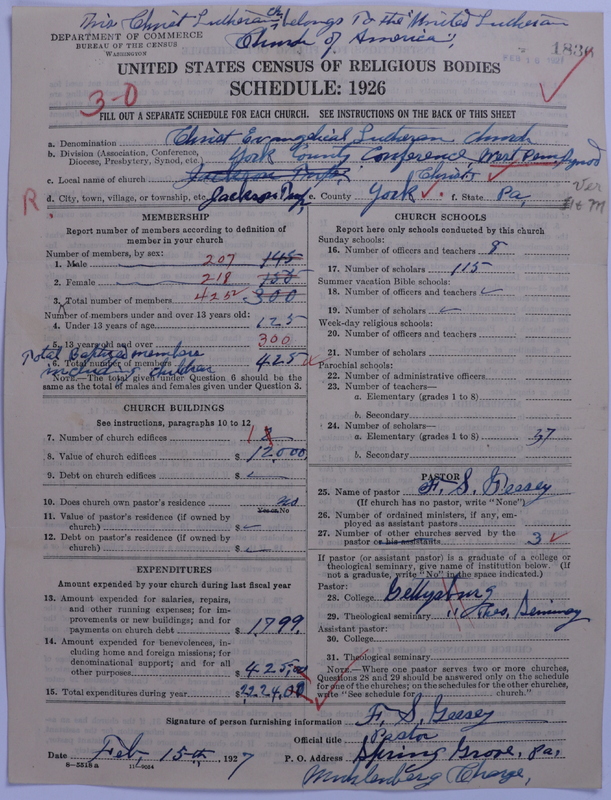 This Christ Lutheran Ch. belongs To the "United Lutheran
Church of America",
DEPARTMENT OF COMMERCE
BUREAU OF THE CENSUS
WASHINGTON
1836
UNITED STATES CENSUS OF RELIGIOUS BODIES
SCHEDULE: 1926
3-0
FILL OUT A SEPARATE SCHEDULE FOR EACH CHURCH. SEE INSTRUCTIONS ON THE BACK OF THIS SHEET
a. Denomination Christ Evangelical Lutheran Church
b. Division (Association, Conference, Diocese, Presbytery, Synod, etc.) York County Conference West Penn Synod
c. Local name of church Jackson Twp. Christ
R d. City, town, village, or township, etc. Jackson Twp. e. County York f. State Pa.
MEMBERSHIP
Report number of members according to definition of
member in your church
Number of members, by sex:
1. Male 207 145
2. Female 218 155
3. Total number of members 425 300
Number of members under and over 13 years old:
4. Under 13 years of age 125
5. 13 years old and over 300
Total Baptized members
including children
6. Total number of members 425
NOTE.—The total given under Question 6 should be the
same as the total of males and females given under Question 3.
CHURCH BUILDINGS
See instructions, paragraphs 10 to 12
7. Number of church edifices 1
8. Value of church edifices $ 12,000
9. Debt on church edifices $
10. Does church own pastor's residence no
Yes or No
11. Value of pastor's residence (if owned by
church) $
12. Debt on pastor's residence (if owned by
church) $
EXPENDITURES
Amount expended by your church during last fiscal year
13. Amount expended for salaries, repairs,
and other running expenses; for im-
provements or new buildings; and for
payments on church debt $ 1799.
14. Amount expended for benevolences, in-
cluding home and foreign missions; for
denominational support; and for all
other purposes $ 425.00
15. Total expenditures during year $ 2224.00
CHURCH SCHOOLS
Report here only schools conducted by this church
Sunday schools:
16. Number of officers and teachers 8
17. Number of scholars 115
Summer vacation Bible schools:
18. Number of officers and teachers
19. Number of scholars
Week-day religious schools:
20. Number of officers and teachers
21. Number of scholars
Parochial schools:
22. Number of administrative officers
23. Number of teachers—
a. Elementary (grades 1 to 8)
b. Secondary
24. Number of scholars—
a. Elementary (grades 1 to 8) 37
b. Secondary
PASTOR
25. Name of pastor F. S. Geesey
(If church has no pastor, write "None")
26. Number of ordained ministers, if any, em-
ployed as assistant pastors
27. Number of other churches served by the
pastor or his assistants 3
If pastor (or assistant pastor) is a graduate of a college or
theological seminary, give name of institution below. (If
not a graduate, write "No" in the space indicated.)
Pastor:
28. College Gettysburg
29. Theological seminary " Theo. Seminary
Assistant pastor:
30. College
31. Theological seminary
NOTE.—Where one pastor serves two or more churches,
Questions 28 and 29 should be answered only on the schedule
for one of the churches; on the schedules for the other churches,
write "See schedule for church."
Signature of person furnishing information F. S. Geesey
Official title Pastor
Date Feb. 15th, 1927 P. O. Address Spring Grove, Pa.
8-5518a 11-9054
Muhlenberg Charge,